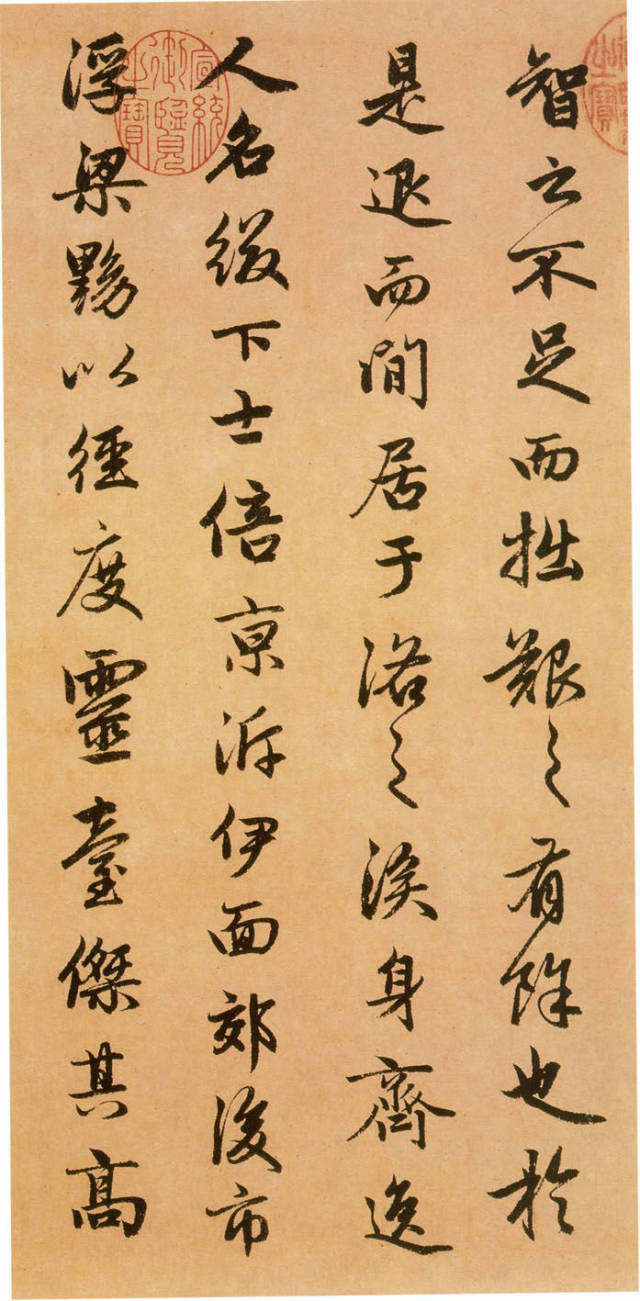 智云不足而拙艱之有餘也於
是退而間居于洛之涘身齊逸
人名綴下士倍京泝伊面郊後市
浮梁黝以徑度靈臺傑其高
宣統御覽之寶
之寶